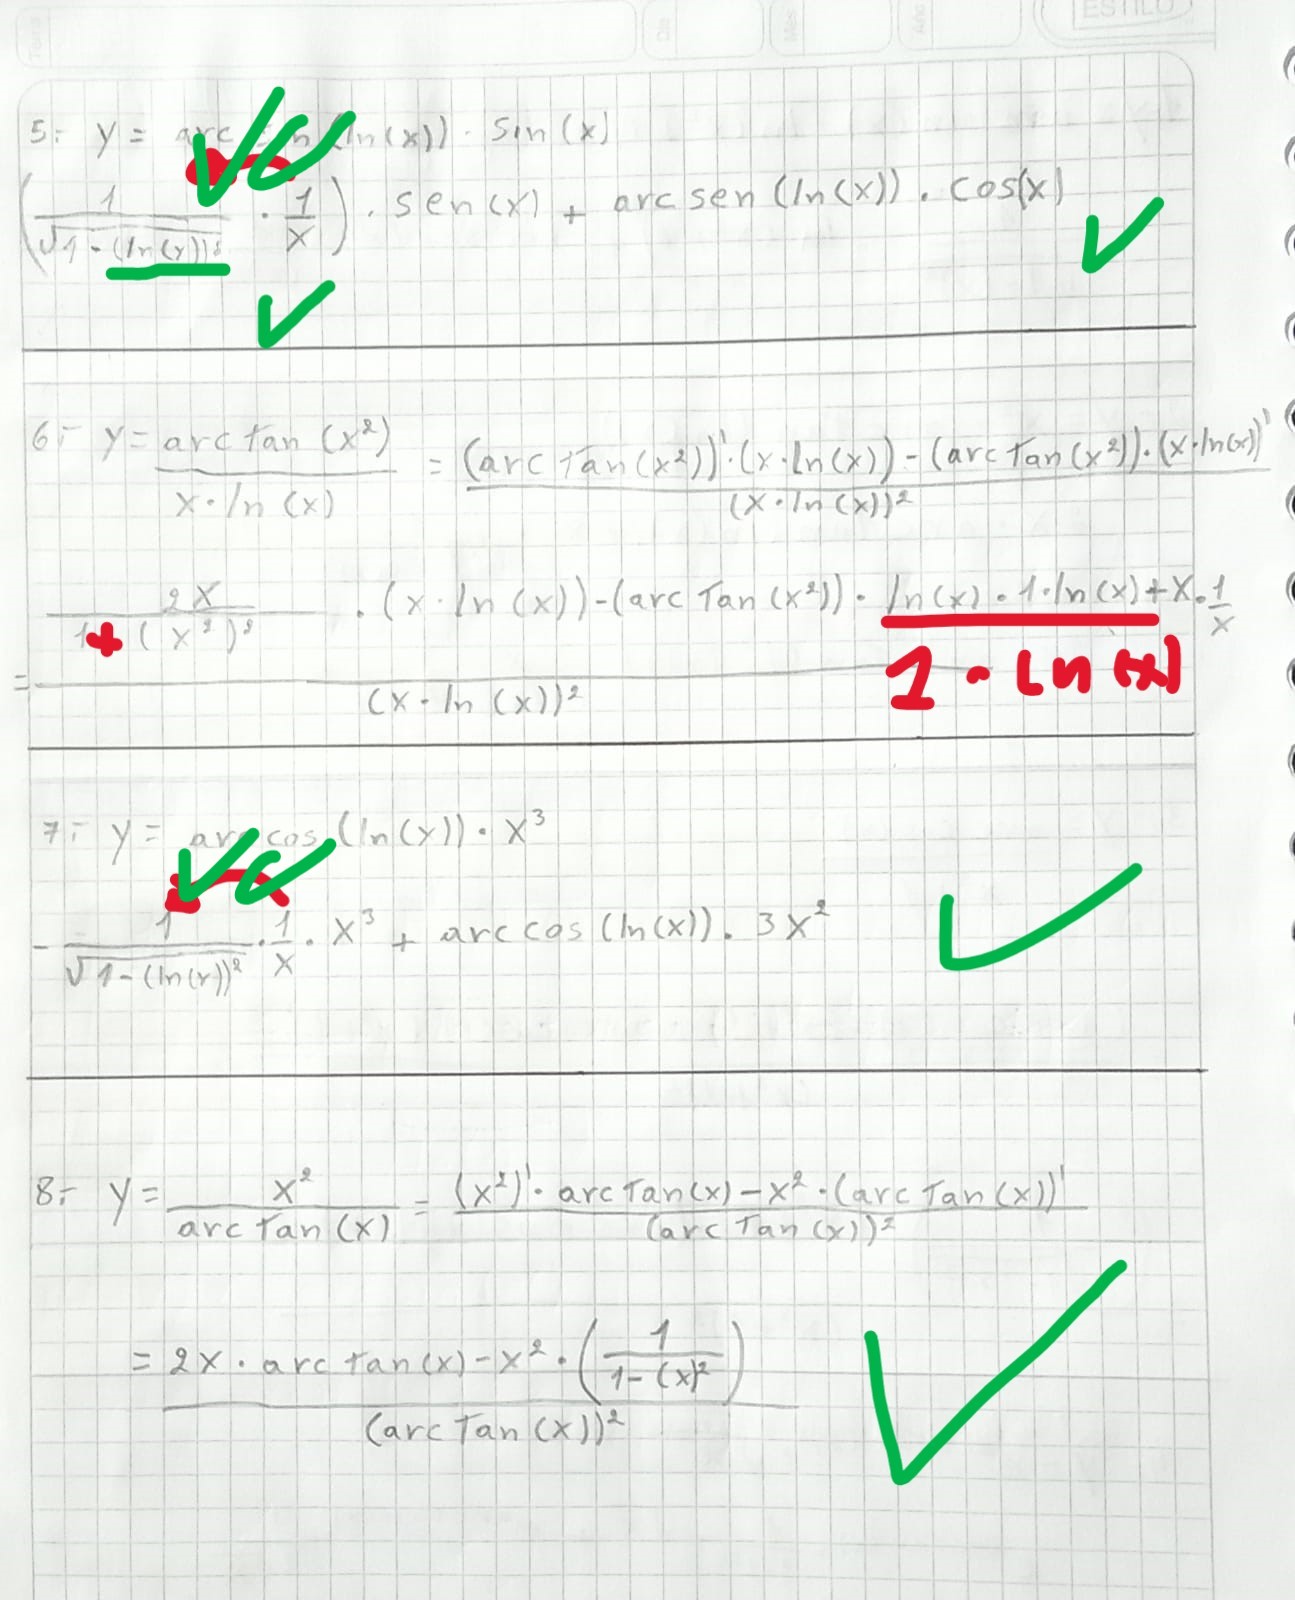 ESTILO
5.- y = arc sen (ln(x)) · sin(x)
(1/√1-(ln(x))² · 1/x) · sen(x) + arc sen (ln(x)) · cos(x)
6.- y = arc tan (x²) / x·ln(x) = (arc Tan(x²))'·(x·ln(x)) - (arc Tan(x²))·(x·ln(x))' / (x·ln(x))²
= 2x / 1+(x²)² · (x·ln(x)) - (arc Tan(x²)) · ln(x)·1·ln(x) + x·1/x / (x·ln(x))²
1·ln(x)
7.- y = arc cos (ln(x)) · x³
- 1/√1-(ln(x))² · 1/x · x³ + arc cos (ln(x)) · 3x²
8.- y = x² / arc Tan(x) = (x²)'· arc Tan(x) - x²·(arc Tan(x))' / (arc Tan(x))²
= 2x · arc tan(x) - x² · (1 / 1-(x)²) / (arc Tan(x))²